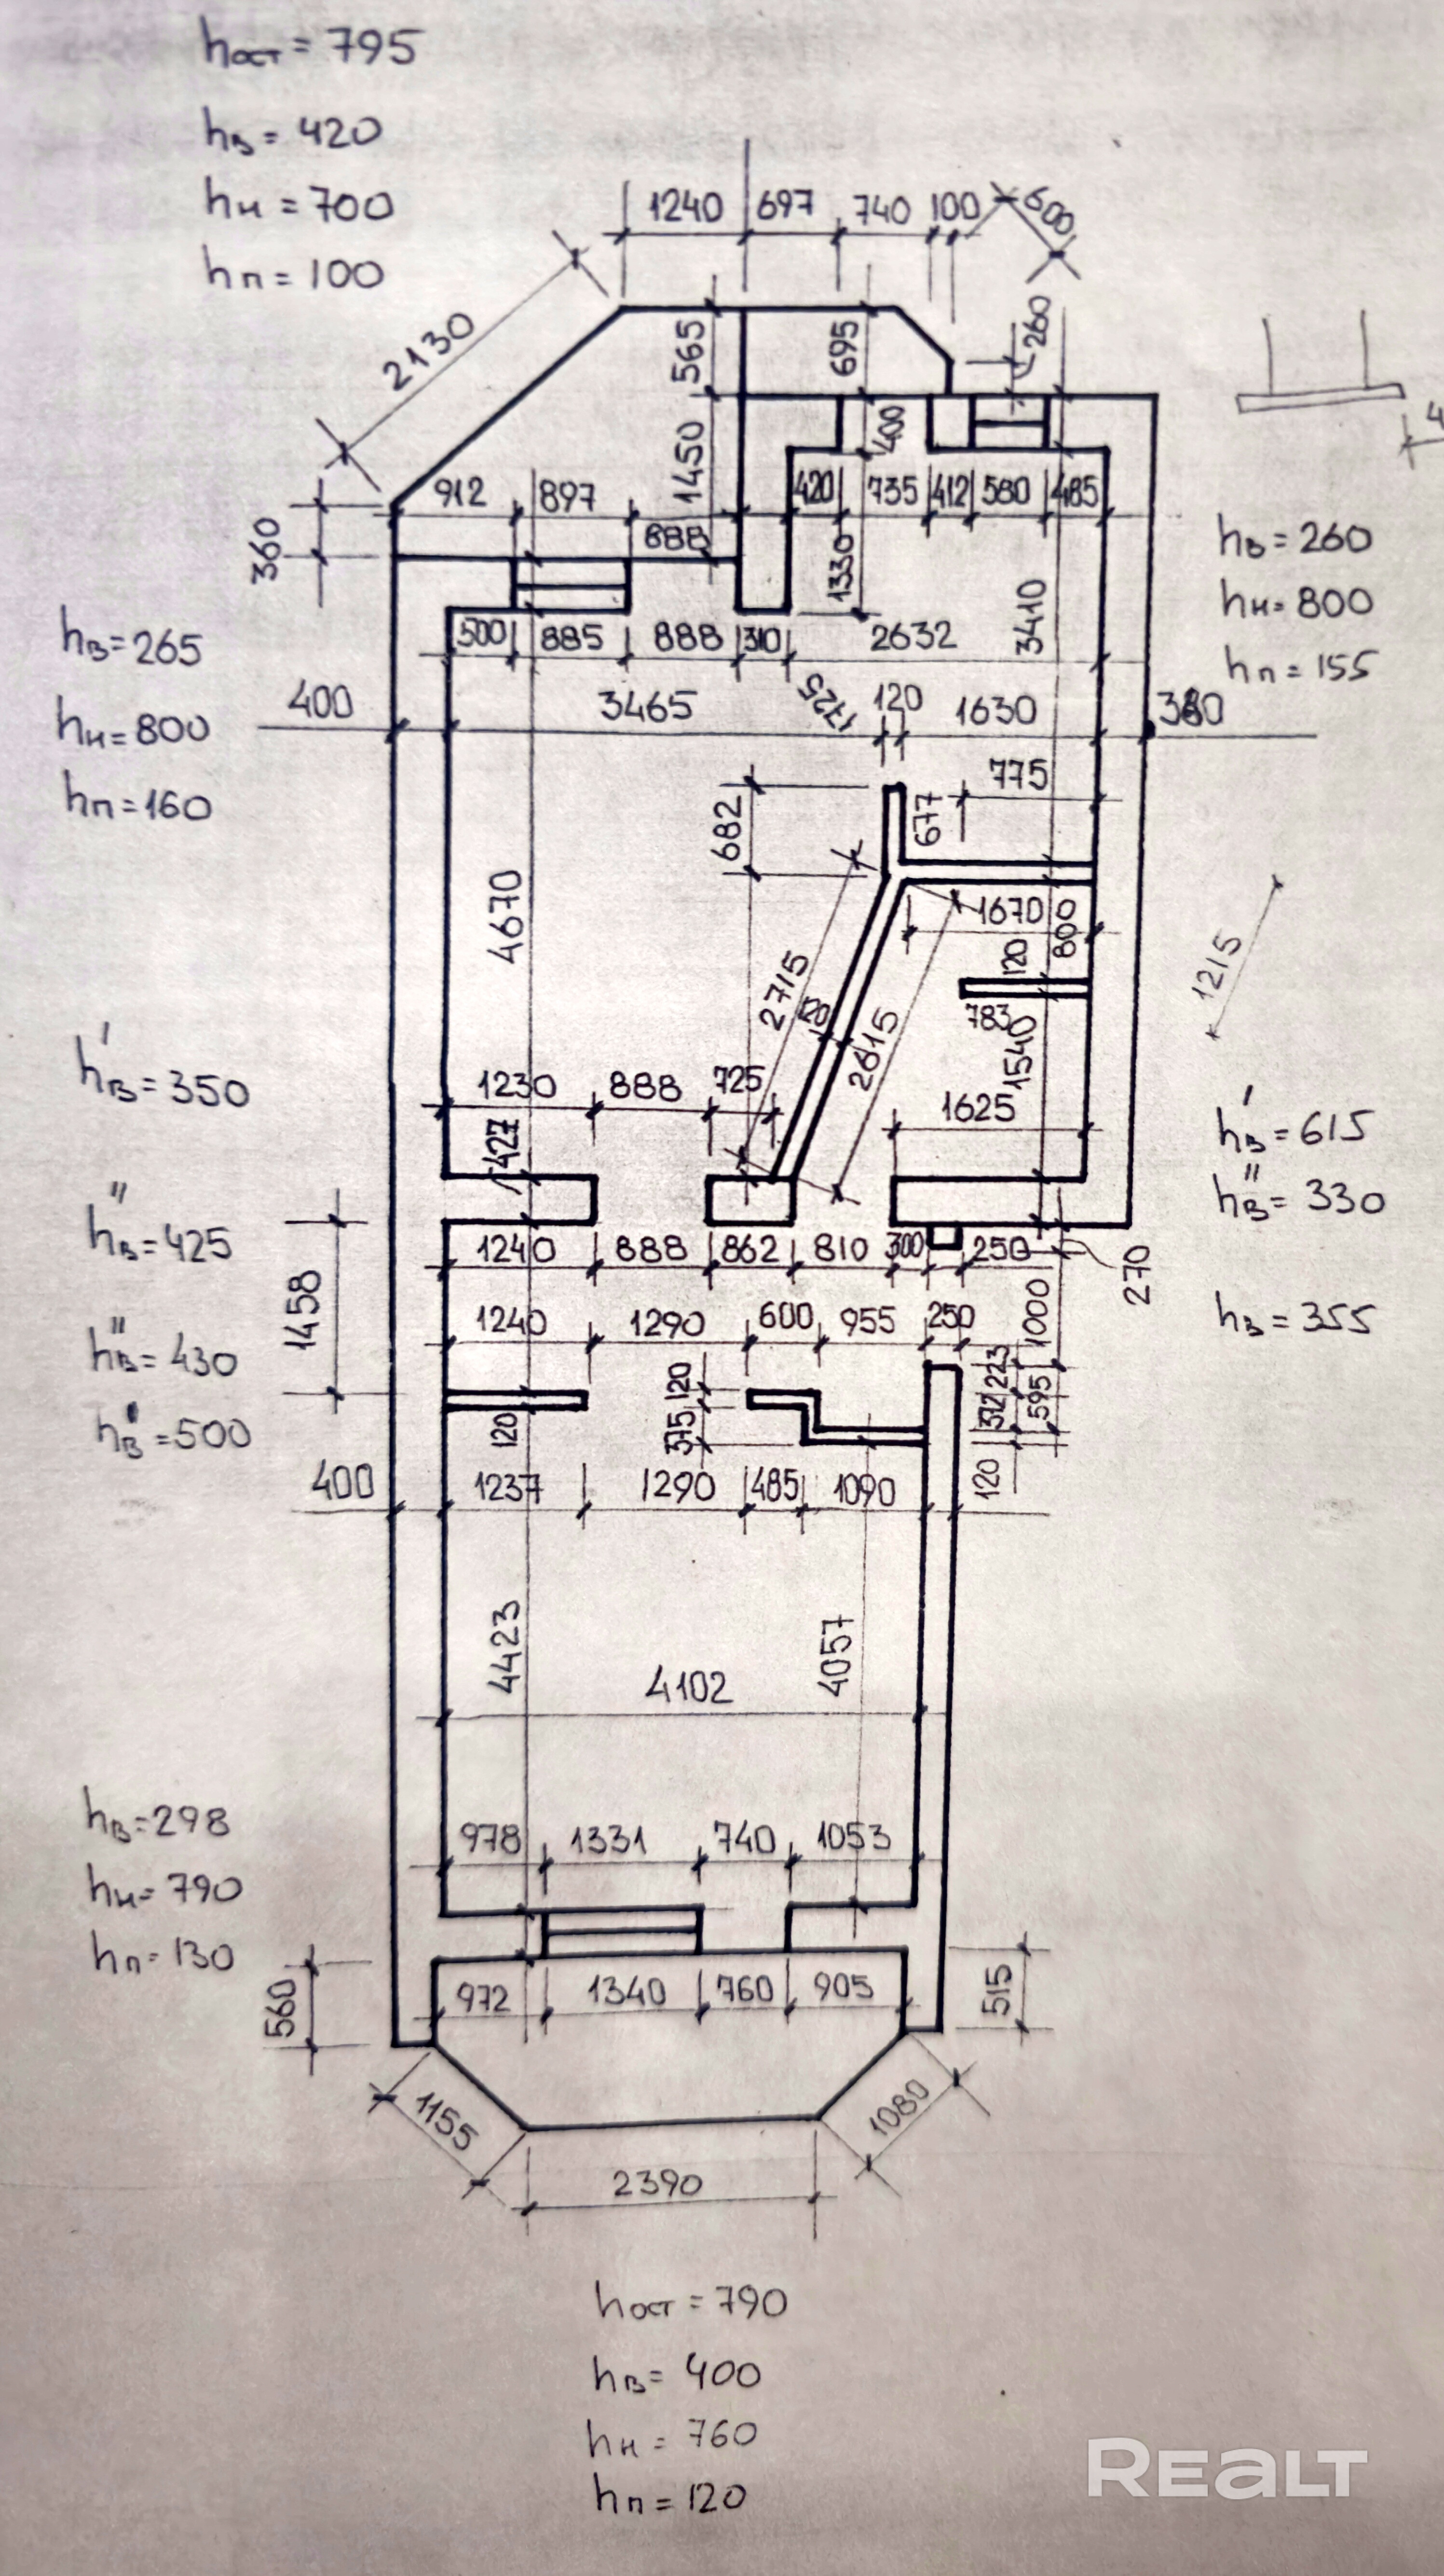 hост = 795
hв = 420
hн = 700
hп = 100
1240 697 740 100 600
2130
565 695 260
1450 400
912 897 420 735 412 580 485
360 888 1330
hв = 260
hн = 800
hп = 155
3410
hв = 265
hн = 800
hп = 160
500 885 888 310 2632
400 3465 1725 120 1630 380
775
682 677
4670
1670 800
2715 120 2615 120
783 1540
1215
h'в = 350
1230 888 725 1625
427
h'в = 615
h"в = 330
h"в = 425
1240 888 862 810 300 250
270
1458
1240 1290 600 955 250 1000
hв = 355
h"в = 430
hв = 500
120 223
375 372 595
120 120
400 1237 1290 485 1090
4423 4057
4102
hв = 298
hн = 790
hп = 130
978 1331 740 1053
560 972 1340 760 905 515
1155 1080
2390
hост = 790
hв = 400
hн = 760
hп = 120
REALT